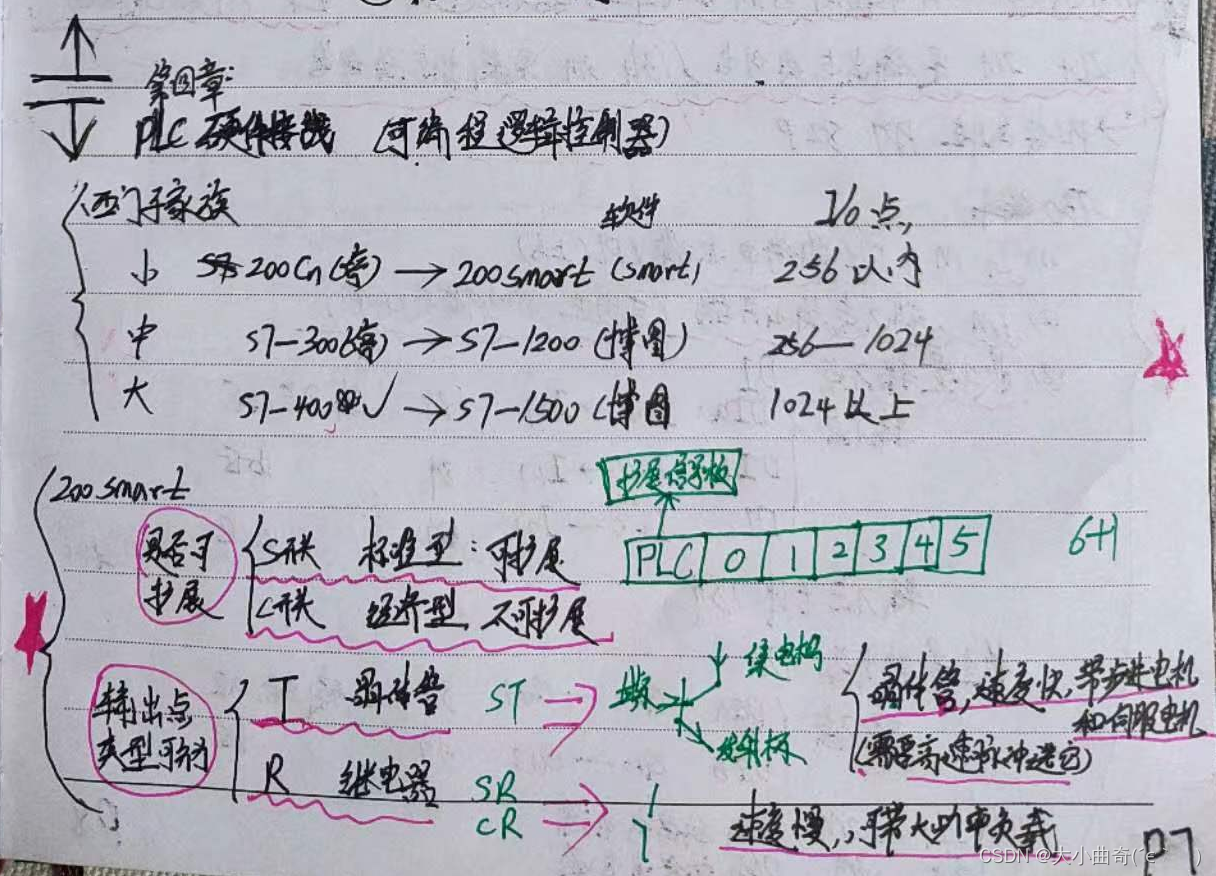 第四章:
PLC 硬件接线 (可编程逻辑控制器)
西门子家族 软件 I/O 点,
小 200Cn(弃) → 200smart (smart) 256 以内
中 S7-300(弃) → S7-1200 (博图) 256—1024
大 S7-400 ✓ → S7-1500 (博图 1024 以上
200 smart
扩展信号板
是否可扩展
S开头 标准型:可扩展
PLC 0 1 2 3 4 5 6+1
C开头 经济型 不可扩展
输出点类型可分
T 晶体管 ST
基极 集电极 发射极
晶体管,速度快,带步进电机和伺服电机
(需要高速脉冲选它)
R 继电器 SR
CR
速度慢,可带大功率负载
P7
CSDN @大小曲奇(